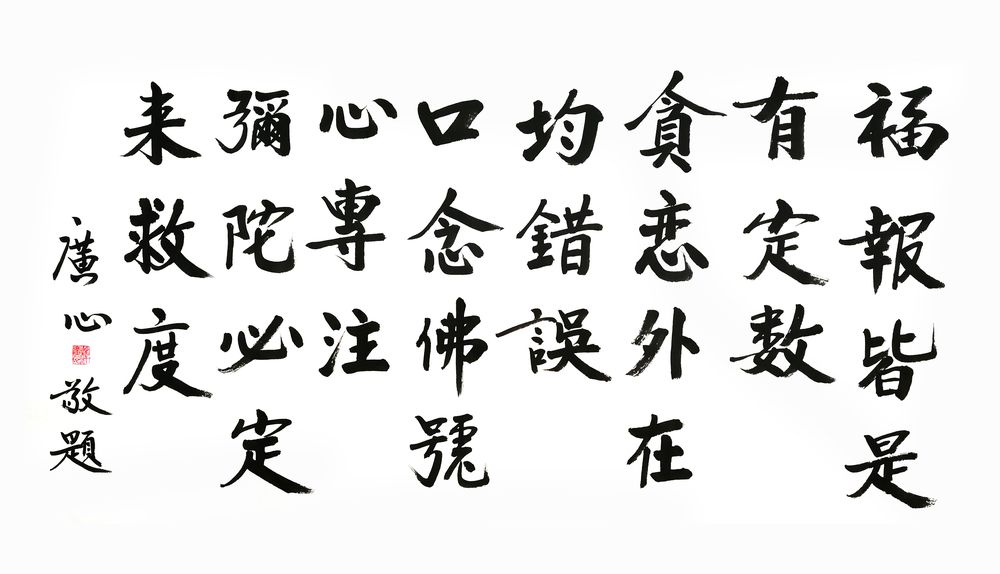 福報皆是
有定数
貪恋外在
均錯誤
口念佛號
心專注
彌陀必定
来救度
廣心敬題